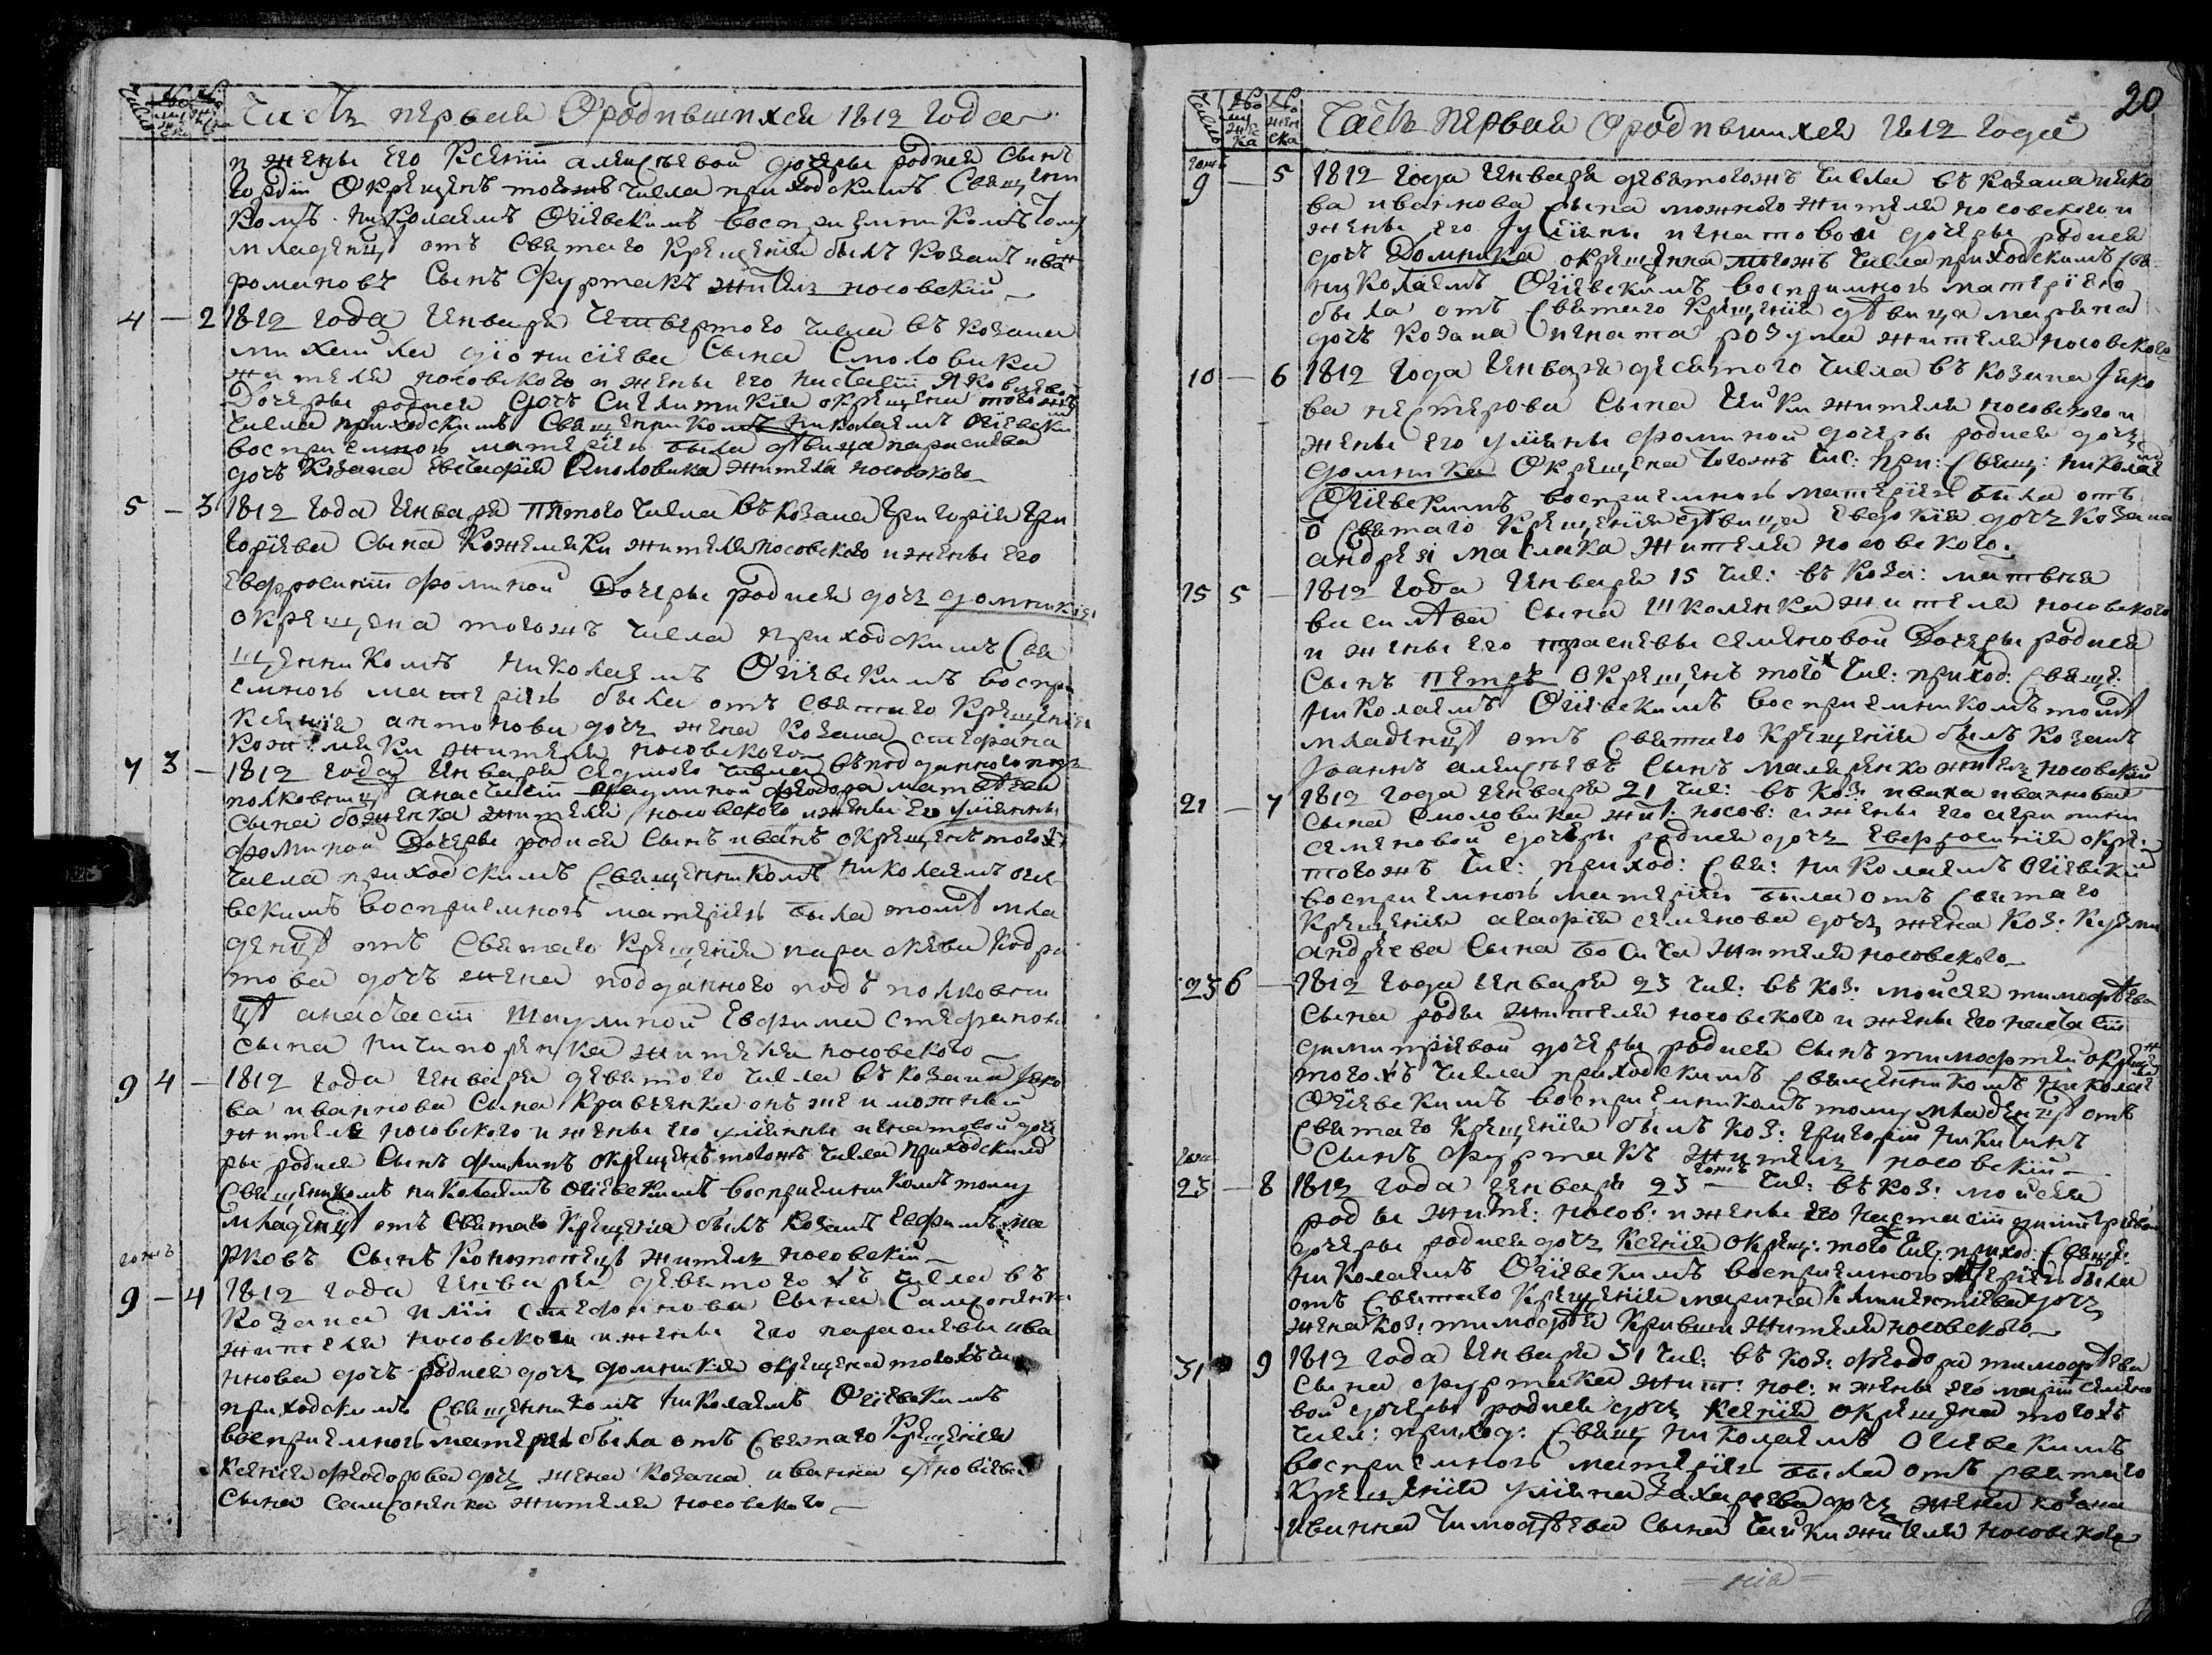 Числа мужска женска
Часть первая О родившихся 1812 года
и жены его Ксенiи алексѣевой дочеры родися Сынъ
Гордiй Окрещенъ тогожъ числа приходскимъ Священни
комъ николаемъ Огiевскимъ воспрiемникомъ тому
младенцу отъ Святаго Крещенiя былъ Козакъ иванъ
романовъ Сынъ Фурманъ житель носовскiй
4 — 2 1812 года Января Четвертого числа въ козака
михайла дiонисiева Сына Смоловика
жителя носовского и жены его настасiи Яковлевой
Дочеры родися Дочъ Сигклитикiя окрещена тогожъ
числа приходскимъ Священникомъ николаемъ Огiевским
воспрiемною матерiею была дѣвица парасиева
дочъ Козака Евстафiя Смоловика жителя носовского
5 — 3 1812 года Января Пятого числа въ козака Григорiя Гри
горiева Сына Кожемяки жителя носовского и жены его
Евфросинiи фоминой Дочеры родися дочъ домникiя
окрещена тогожъ числа приходскимъ Свя
щенникомъ николаемъ Огiевскимъ воспрi
емною матерiею была отъ Святаго Крещенiя
Ксенiя антонова дочъ жена Козака стефана
Кожемяки жителя носовского
7 3 — 1812 года Января Седмого числа въ подданного подъ
полковницѣ анастасiи федора матвѣева
Сына боженка жителя носовского и жены его улiянны
фоминой Дочеры родися Сынъ иванъ окрещенъ тогожъ
числа приходскимъ Священникомъ николаемъ огiе
вскимъ воспрiемною матерiею была томѣ мла
денцѣ отъ Святаго Крещенiя параскева кодра
това дочъ жена подданного подъ полковни
цѣ анастасiи Евфима стефанова
сына ничипоренка жителя носовского
9 4 — 1812 года Января девятого числа въ козака Яко
ва иванова Сына Кравченка онъ же и можный
жителя носовского и жены его улiянны игнатовой доче
ры родися Сынъ филипъ окрещенъ тогожъ числа приходскимъ
Священникомъ николаемъ Огiевскимъ воспрiемникомъ тому
младенцѣ отъ Святаго Крещенiя былъ Козакъ Евфимъ ма
рковъ Сынъ Конотопецъ житель носовскiй
тожъ
9 — 4 1812 года Января девятого жъ числа въ
Козака илiи стефанова Сына Самсоненка
жителя носовского и жены его парасиевы ива
нова дочъ родися дочъ домникiя окрещена тогожъ чи
приходскимъ Священникомъ николаемъ Огiевскимъ
воспрiемною матерею была отъ Святаго Крещенiя
Ксенiя федорова дочъ жена Козака иванна
Сына Самсоненка жителя носовского
20
Числа мужска женска
Часть первая О родившихся 1812 года
тожъ
9 — 5 1812 года Января девятогожъ числа въ козака яко
ва иванова сына можного жителя носовского и
жены его Iулiяны игнатовой дочеры родися
дочъ Домника окрещенна тогожъ числа приходскимъ Свя
николаемъ Огiевскимъ воспримною матерiею
была отъ Святаго Крещенiя дѣвица марина
дочъ козака игната розума жителя носовского
10 — 6 1812 года Января десятого числа въ козака Яко
ва нестерова Сына Чайки жителя носовского и
жены его улiяны фоминой дочеры родися дочъ
домника Окрещена тогожъ чис: при: свящ: николаем
Огiевскимъ воспрiемною матерiею была отъ
Святаго Крещенiя дѣвица Евдокiя дочъ козака
андрея маслака жителя носовского.
15 5 — 1812 года Января 15 чис: въ коза: матвея
василѣва Сына Школенка жителя носовского
и жены его парасиевы семеновой Дочеры родися
Сынъ петръ окрещенъ того ж чис: приход: свяще:
николаемъ Огiевскимъ воспрiемникомъ томѣ
младенцѣ отъ Святаго Крещенiя былъ козакъ
Iоаннъ алексѣевъ Сынъ маляренко житель носовскiй
21 — 7 1812 года Января 21 чис: въ коз: ивана иванова
сына Смоловика жит: носов: и жены его
семеновой дочеры родися дочъ Евфросинiя окре:
тогожъ чис: приход: Свя: николаемъ Огiевским
воспрiемною матерiею была отъ Святаго
Крещенiя агафiя семенова дочъ жена коз: Кузми
андреева Сына жителя носовского
23 6 — 1812 года Января 23 чис: въ коз: мойсея тимофѣева
сына родзи жителя носовского и жены его настасiи
димитрiевой дочеры родися сынъ тимофтей окрещен
тогожъ числа приходскимъ священникомъ николаем
Огiевскимъ воспрiемникомъ тому младенцѣ отъ
Святаго Крещенiя былъ коз: григорiй никитинъ
Сынъ фурманъ житель носовскiй
тожъ
23 — 8 1812 года Января 23 тожъ чис: въ коз: мойсея
родзи жите: носов: и жены его настасiи димитрiевой
дочеры родися дочъ Ксенiя окрещ: того ж чис: приход: свяще:
николаемъ Огiевскимъ воспрiемною матерiею была
отъ Святаго Крещенiя марина климентiева дочъ
жена коз: тимофѣя Кривши жителя носовского
31 — 9 1812 года Января 31 чис: въ коз: федора тимофѣева
Сына фурмана жит: нос: и жены его марiи семено
вой дочеры родися дочъ Ксенiя окрещена тогожъ
числ: приход: Свящ николаемъ Огiевскимъ
воспрiемною матерiею была отъ святаго
Крещенiя улiяна Захарева дочъ жена козака
ивана тимофѣева Сына Чайки жителя носовского